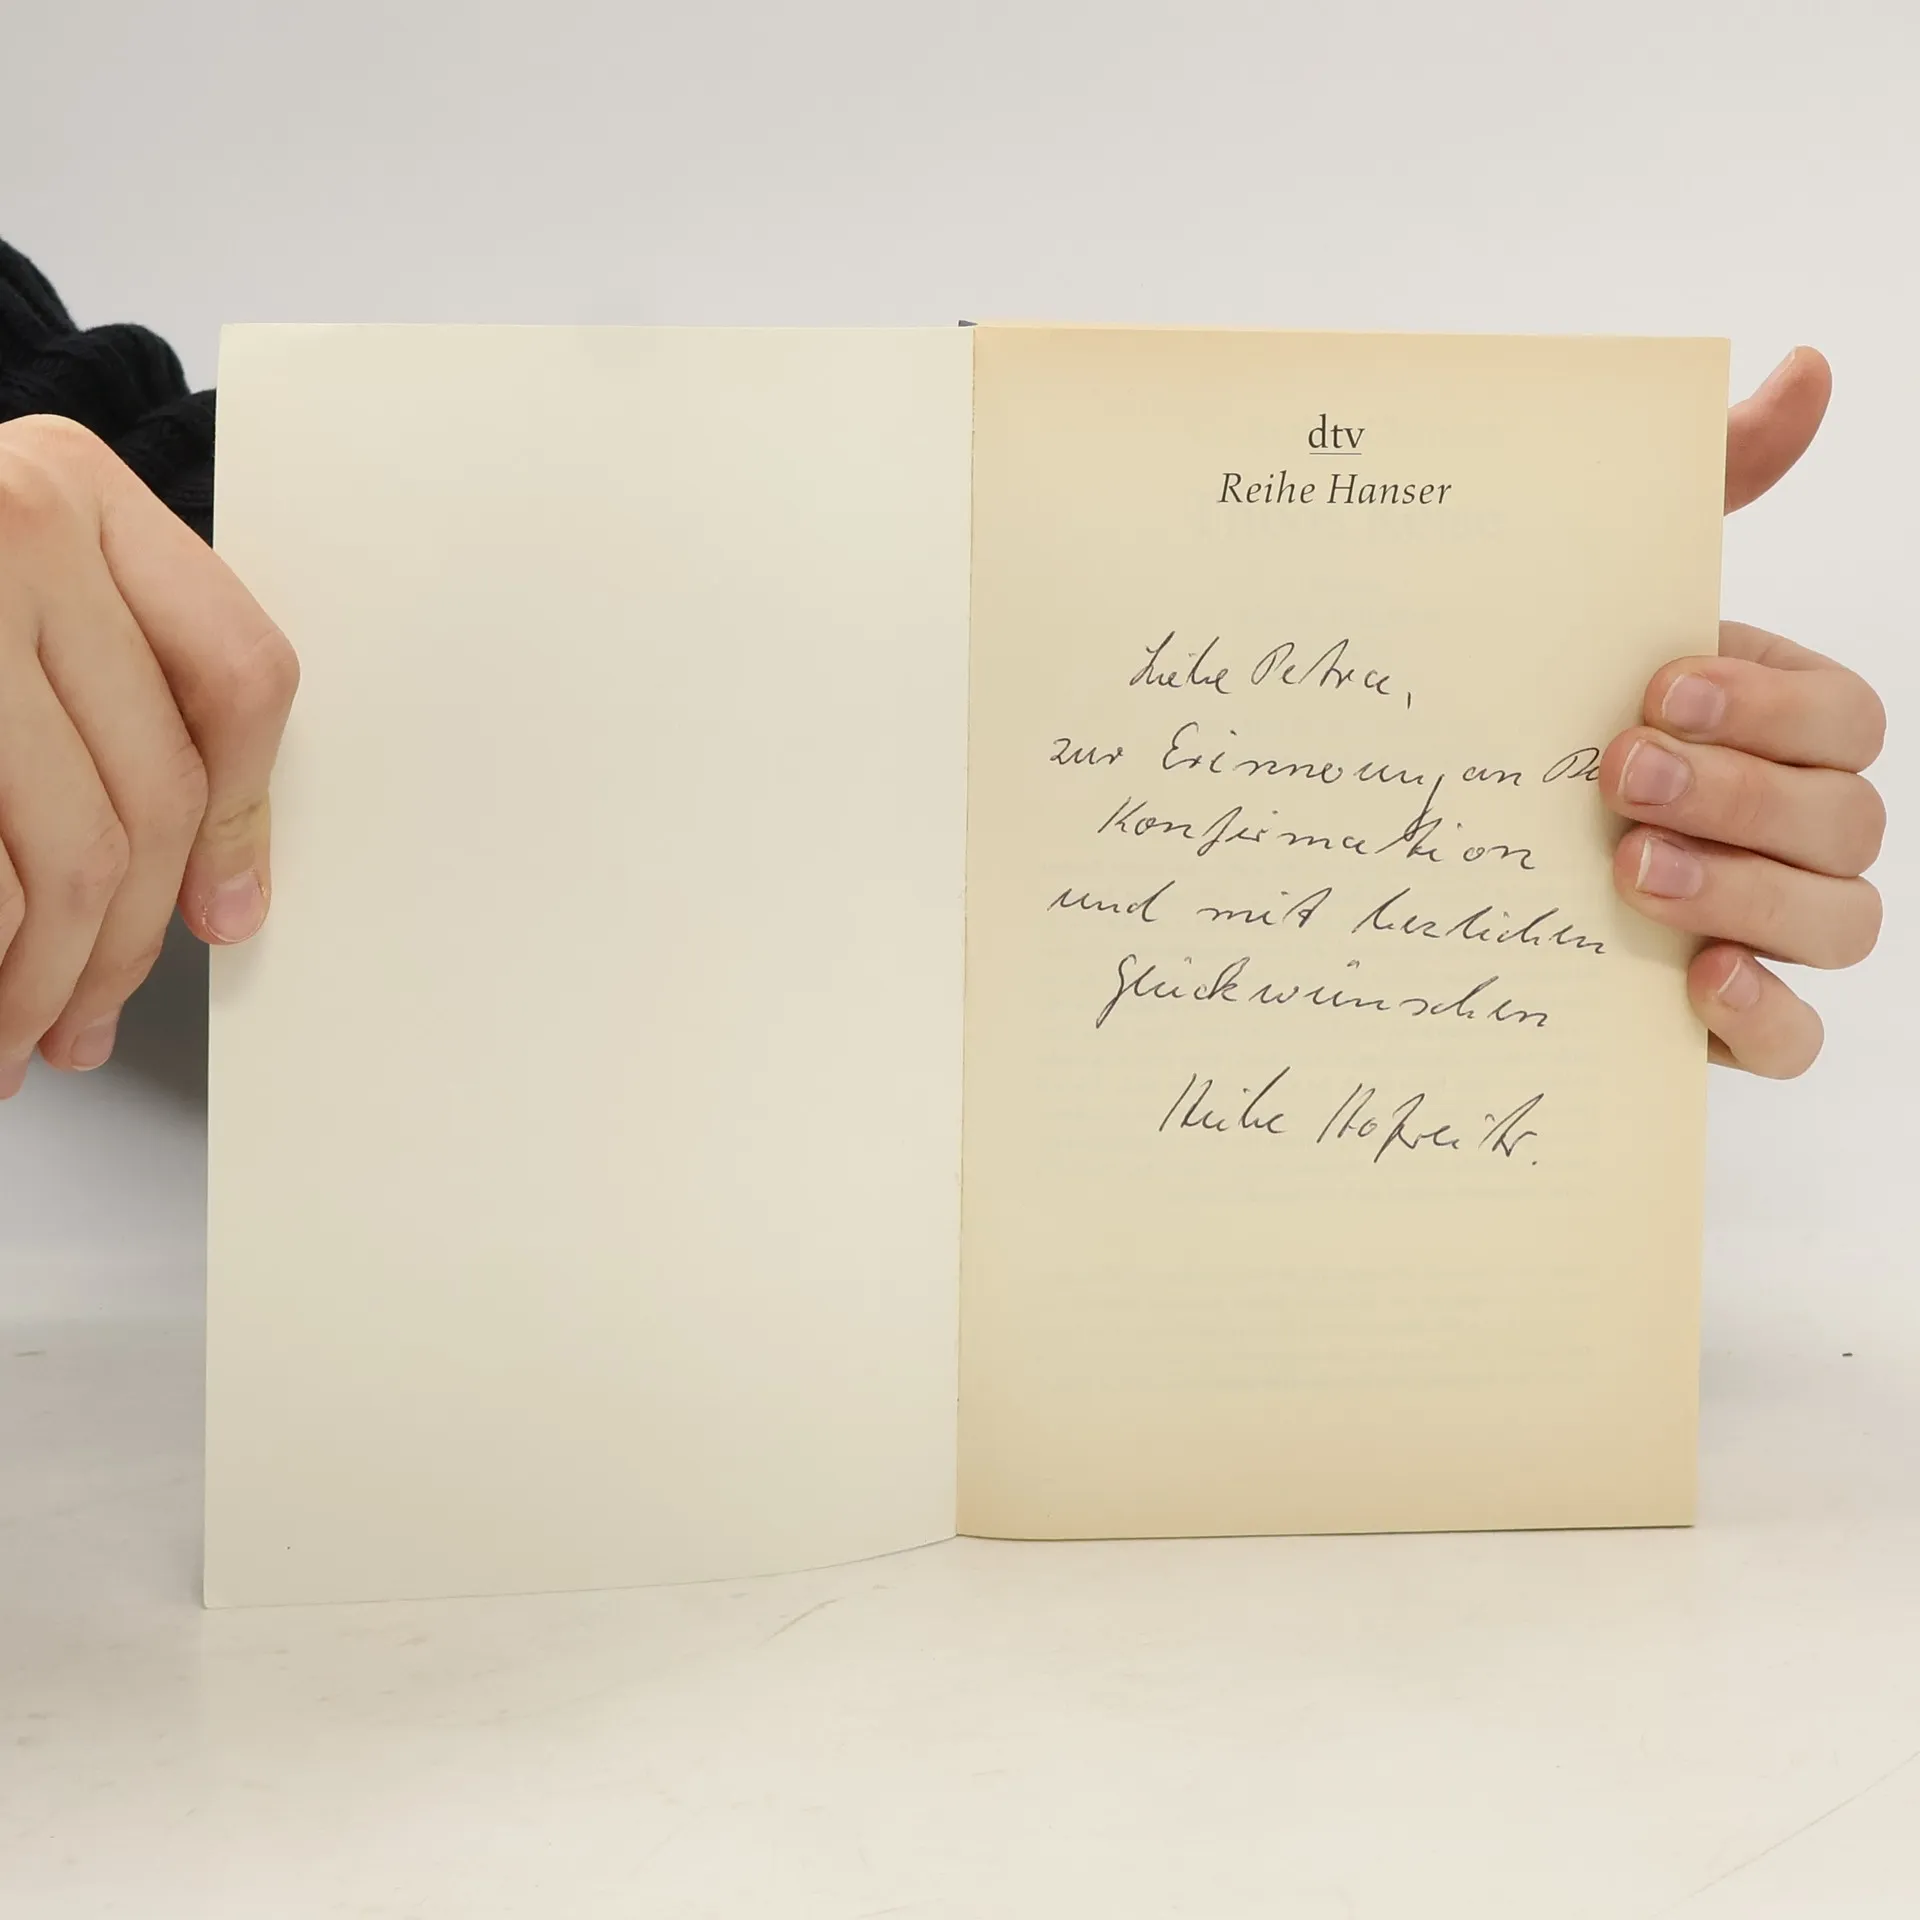 dtv
Reihe Hanser
Liebe Petra,
zur Erinnerung an
Konfirmation
und mit herzlichen
Glückwünschen
Heike Hofreiter.